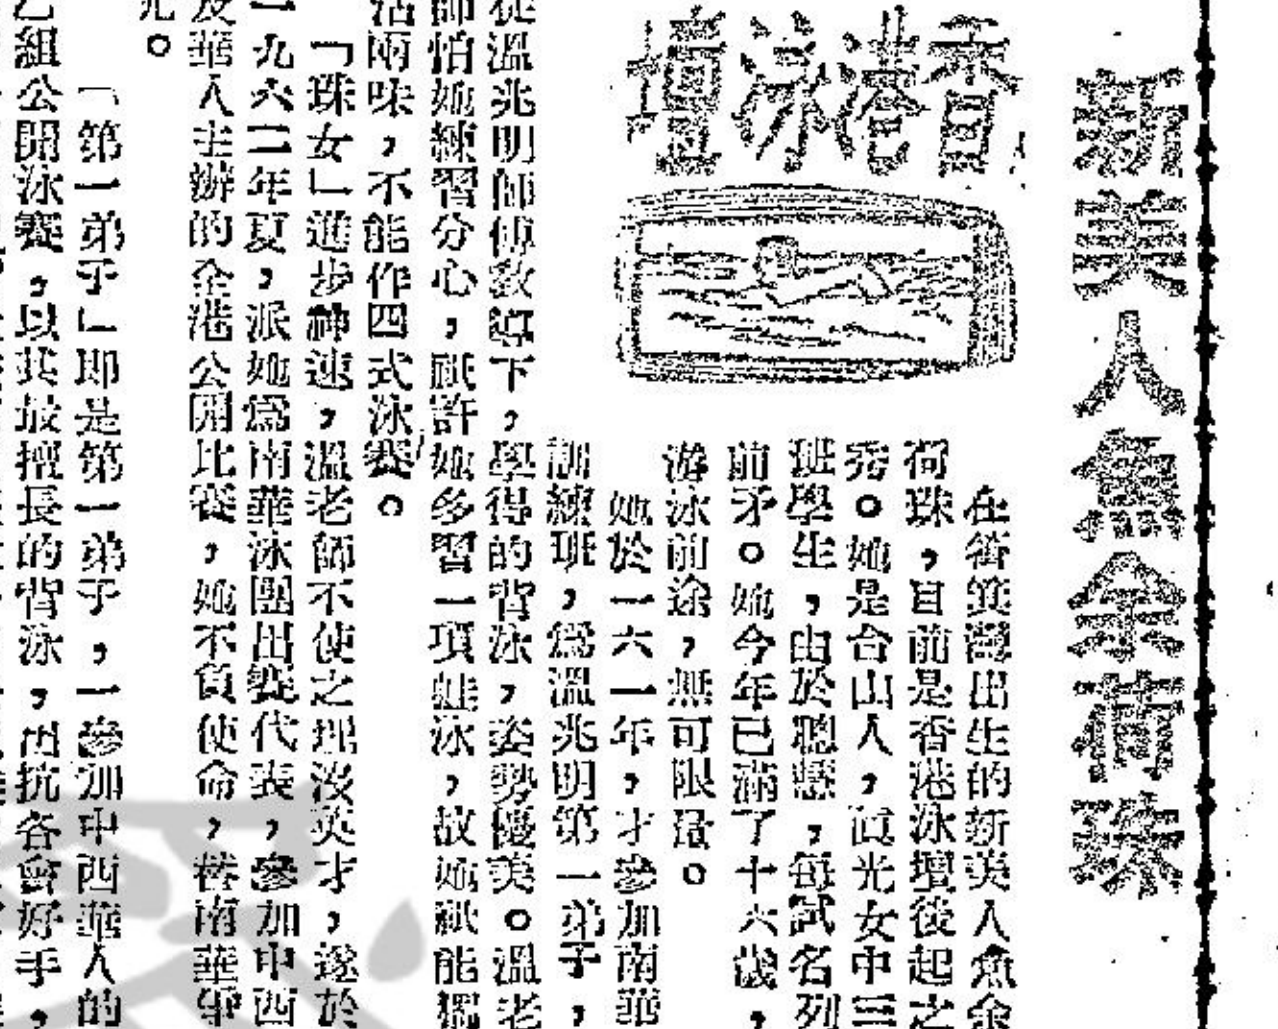 新美人魚余荷珠
香港泳壇
在筲箕灣出生的新美人魚余
荷珠，目前是香港泳壇後起之
秀。她是台山人，眞光女中三
班學生，由於聰慧，每試名列
前矛。她今年已滿了十六歲，
游泳前途，無可限量。
她於一六一年，才參加南華
訓練班，爲溫兆明第一弟子，
從溫兆明師傅敎導下，學得的背泳，姿勢優美。溫老
師怕她練習分心，祇許她多習一項蛙泳，故她祇能獨
沽兩味，不能作四式泳賽。
「珠女」進步神速，溫老師不使之埋沒英才，遂於
一九六二年夏，派她爲南華泳團出賽代表，參加中西
及華人主辦的全港公開比賽，她不負使命，替南華爭
光。
「第一弟子」即是第一弟子，一參加中西華人的
乙組公開泳賽，以其最擅長的背泳，出抗各會好手，